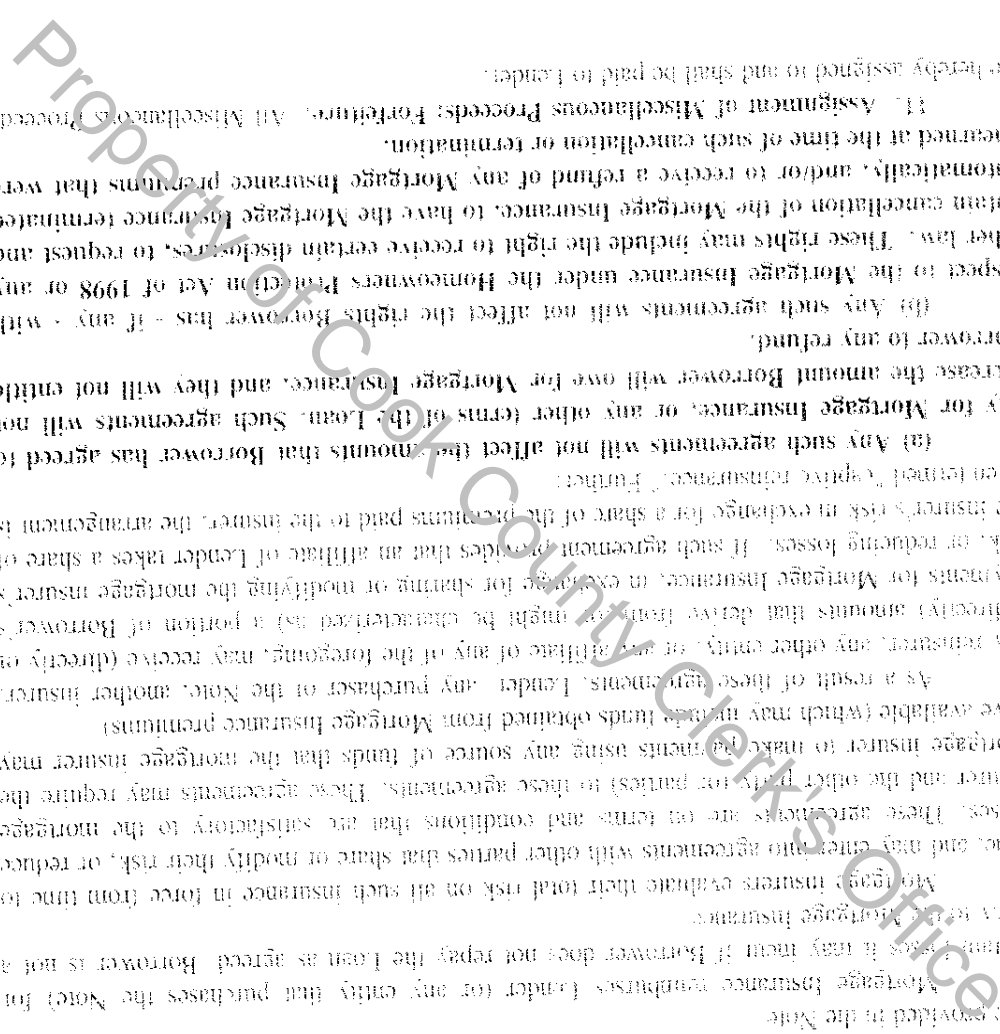 provided in the Note
Mortgage Insurance reimburses Lender (or any entity that purchases the Note) for
losses it may incur if Borrower does not repay the Loan as agreed. Borrower is not a
to the Mortgage Insurance.
Mortgage insurers evaluate their total risk on all such insurance in force from time to
ne, and may enter into agreements with other parties that share or modify their risk, or reduce
ses. These agreements are on terms and conditions that are satisfactory to the mortgage
urer and the other party (or parties) to these agreements. These agreements may require the
ortgage insurer to make payments using any source of funds that the mortgage insurer may
ve available (which may include funds obtained from Mortgage Insurance premiums)
As a result of these agreements, Lender any purchaser of the Note, another insurer,
reinsurer, any other entity, or any affiliate of any of the foregoing, may receive (directly or
directly) amounts that derive from (or might be characterized as) a portion of Borrower's
yments for Mortgage Insurance, in exchange for sharing or modifying the mortgage insurer's
k, or reducing losses. If such agreement provides that an affiliate of Lender takes a share of
e insurer's risk in exchange for a share of the premiums paid to the insurer, the arrangement is
en termed "captive reinsurance." Further:
(a) Any such agreements will not affect the amounts that Borrower has agreed to
y for Mortgage Insurance, or any other terms of the Loan. Such agreements will not
crease the amount Borrower will owe for Mortgage Insurance, and they will not entitle
rrower to any refund.
(b) Any such agreements will not affect the rights Borrower has - if any - with
spect to the Mortgage Insurance under the Homeowners Protection Act of 1998 or any
her law. These rights may include the right to receive certain disclosures, to request and
tain cancellation of the Mortgage Insurance, to have the Mortgage Insurance terminated
tomatically, and/or to receive a refund of any Mortgage Insurance premiums that were
nearned at the time of such cancellation or termination.
11. Assignment of Miscellaneous Proceeds; Forfeiture. All Miscellaneous Proceed
e hereby assigned to and shall be paid to Lender.
Property of Cook County Clerk's Office